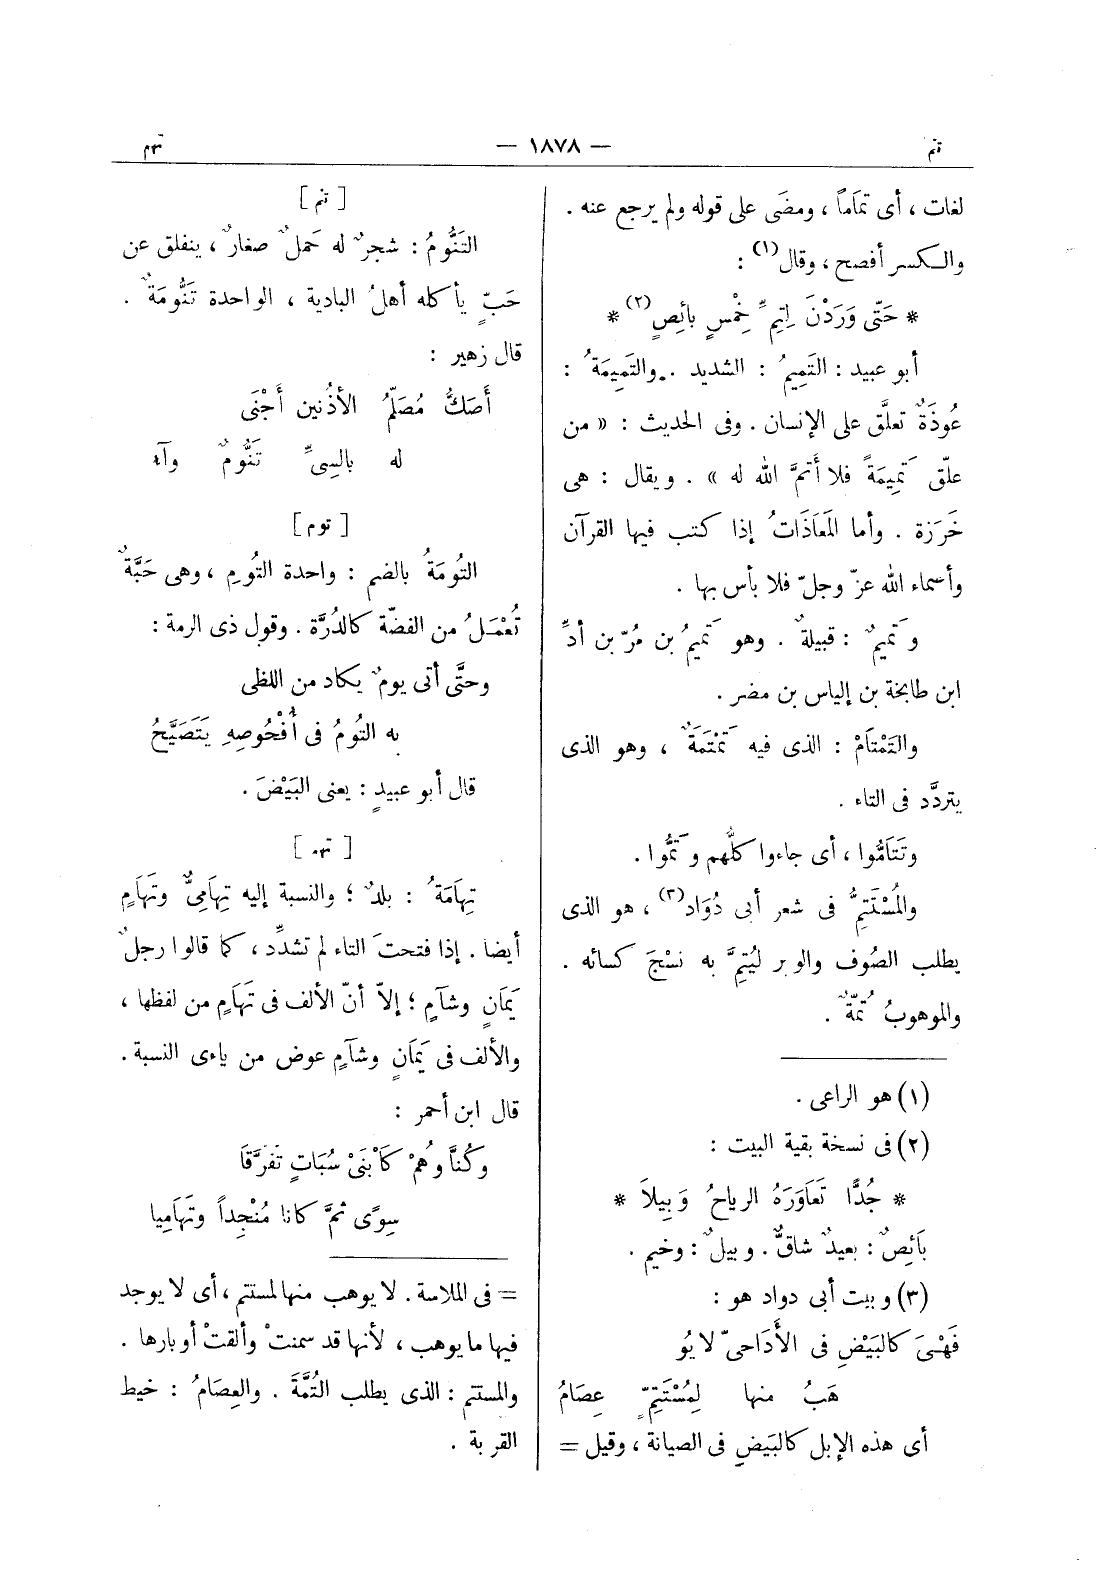 تمم — ١٨٧٨ — تهم
لغات ، أى تمَاماً ، ومضَى على قوله ولم يرجع عنه .
والكسر أفصح ، وقال(١) :
* حَتّى وَرَدْنَ لِتِمِّ خِمْسٍ بائِصٍ(٢) *
أبو عبيد : التَمِيمُ : الشديد . والتَمِيمَةُ :
عُوذَةٌ تعلَّق على الإنسان . وفى الحديث : « من
علّق تَمِيمَةً فلا أَتمَّ الله له » . ويقال : هى
خَرَزة . وأما المَعَاذَاتُ إذا كتب فيها القرآن
وأسماء الله عزّ وجلّ فلا بأس بها .
وتَمِيمٌ : قبيلةٌ . وهو تَمِيمُ بن مُرّ بن أدِّ
ابن طابخة بن إلياس بن مضر .
والتَمْتَامُ : الذى فيه تَمْتَمَةٌ ، وهو الذى
يتردَّد فى التاء .
وتَتَامُّوا ، أى جاءوا كلُّهم وتَمُّوا .
والمُسْتَتِمُّ فى شعر أبى دُوَاد(٣) ، هو الذى
يطلب الصُوف والوبر ليُتِمَّ به نسْجَ كسائه .
والموهوبُ تُمّةٌ .
(١) هو الراعى .
(٢) فى نسخة بقية البيت :
* جُدًّا تَعَاوَرَهُ الرياحُ وَبِيلاَ *
بَائِصٌ : بعيدٌ شاقٌّ . وبيلٌ : وخيم .
(٣) وبيت أبى دواد هو :
فَهْىَ كالبَيْضِ فى الأَدَاحىّ لا يُو
هَبُ منها لِمُسْتَتِمّ عِصَامُ
أى هذه الإبل كالبَيض فى الصيانة ، وقيل =
[ تنم ]
التَنُّومُ : شجرٌ له حَملٌ صغارٌ ، ينفلق عن
حَبّ يأكله أهلُ البادية ، الواحدة تَنُّومَةٌ .
قال زهير :
أَصَكُّ مُصَلَّمُ الأذُنين أَجْنَى
له بالسِىِّ تَنُّومٌ وآء
[ توم ]
التُومَةُ بالضم : واحدة التُومِ ، وهى حَبَّةٌ
تُعْمَلُ من الفضّة كالدُرَّة . وقول ذى الرمة :
وحتَّى أتى يومٌ يكاد من اللظى
به التُومُ فى أُفْحُوصِهِ يَتَصَيَّحُ
قال أبو عبيدٍ : يعنى البَيْضَ .
[ تهم ]
تِهَامَةُ : بلدٌ ؛ والنسبة إليه تِهَامِىٌّ وتَهَامٍ
أيضا . إذا فتحتَ التاء لم تشدِّد ، كما قالوا رجلٌ
يَمَانٍ وشآمٍ ؛ إلاّ أنّ الألف فى تَهَامٍ من لفظها ،
والألف فى يَمَانٍ وشآمٍ عوض من ياءى النسبة .
قال ابن أحمر :
وكُنَّا وهُمْ كَابْنَىْ سُبَاتٍ تَفَرَّقَا
سِوًى ثمَّ كانا مُنْجِداً وتَهَامِيا
= فى الملاسة . لا يوهب منها لمستتم ، أى لا يوجد
فيها ما يوهب ، لأنها قد سمنتْ وألقتْ أوبارها .
والمستتم : الذى يطلب التُمَّةَ . والعِصَامُ : خيط
القربة .